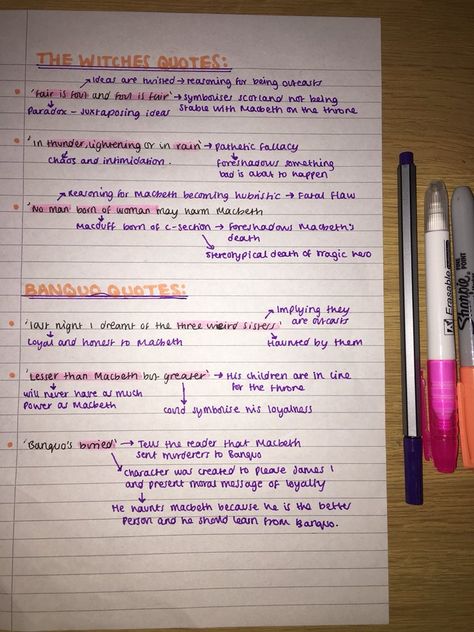 THE WITCHES QUOTES:
Ideas are twisted → reasoning for being outcasts
'Fair is foul and foul is fair' → symbolises scotland not being
stable with Macbeth on the throne
Paradox - juxtaposing ideas
'In thunder, lightening or in rain' → Pathetic fallacy
chaos and intimidation.
Foreshadows something
bad is about to happen
Reasoning for Macbeth becoming hubristic → Fatal Flaw
'No man born of woman may harm Macbeth
Macduff born of c-section → Foreshadows Macbeth's
death
Stereotypical death of tragic hero
BANQUO QUOTES:
Implying they
are outcasts
'last night I dreamt of the three weird sisters'
Loyal and honest to Macbeth
Haunted by them
'Lesser than Macbeth but greater' → His children are in line
for the throne
will never have as much
power as Macbeth
could symbolise his loyalness
'Banquo's buried' → Tells the reader that Macbeth
sent murderers to Banquo
Character was created to please James I
and present moral message of loyalty
He haunts Macbeth because he is the better
person and he should learn from Banquo.
Erasable
Sharpie
FINE
POINT